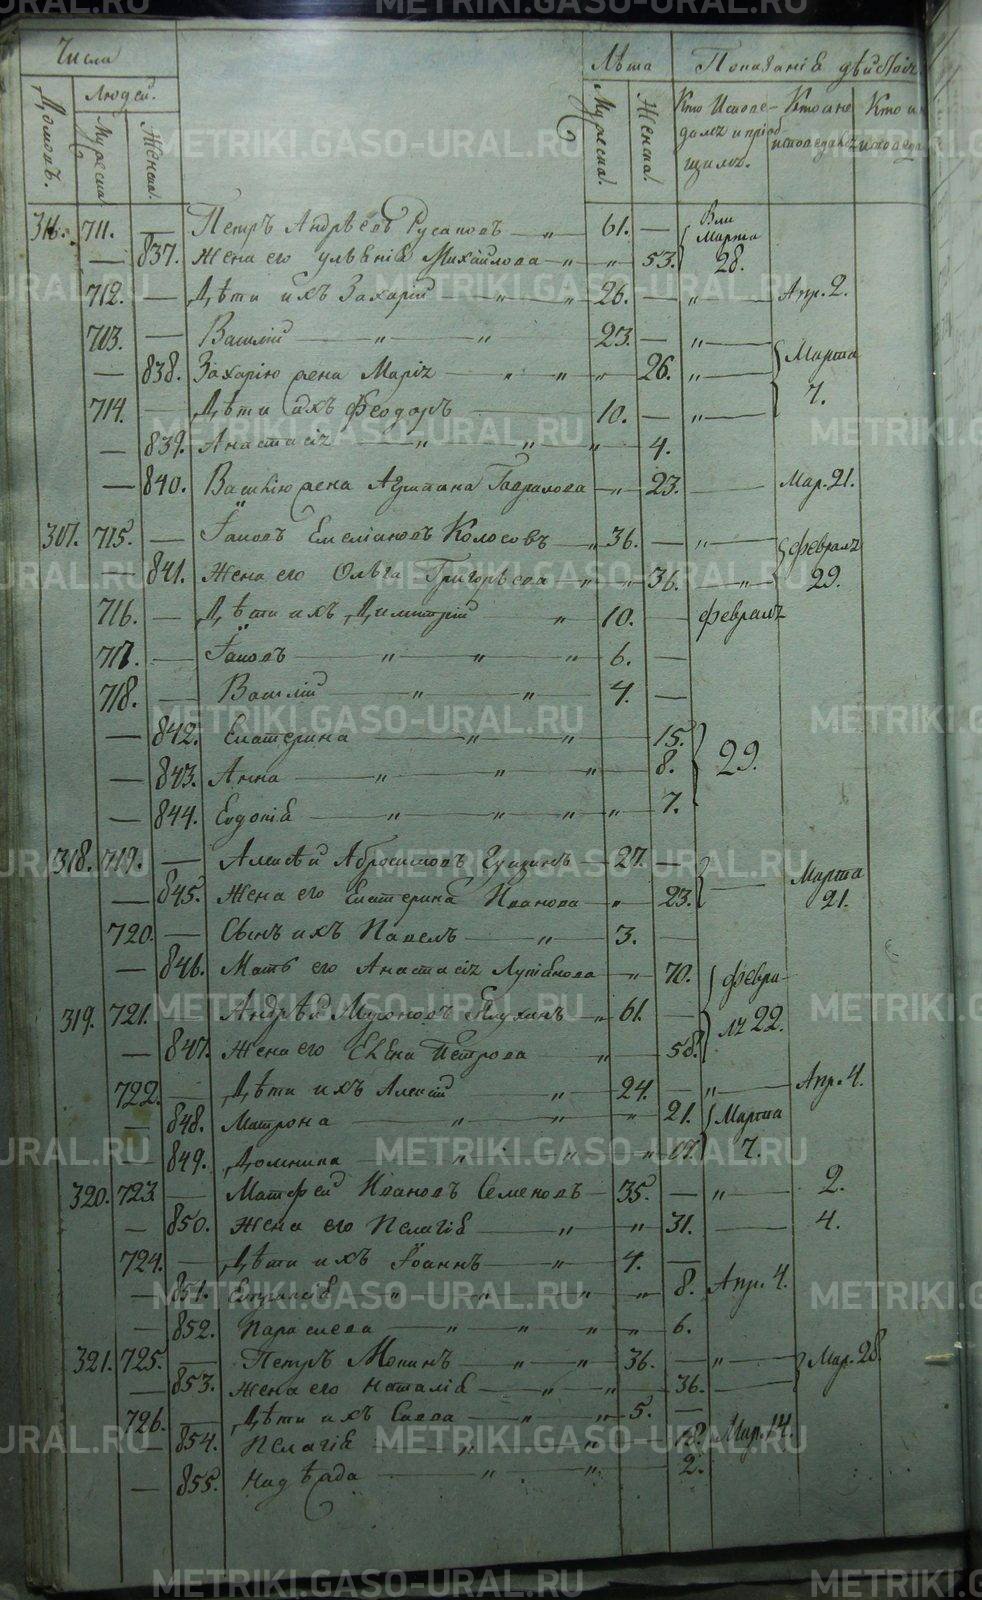 Числа Лѣта Показанiе дѣйств
Домовъ. Людей. Мужеска. Женска. Мужеска. Женска. Кто Исповѣдалъ и прiобщилъ. Кто не исповѣдалъ
316. 711. — Петръ Андрѣевъ Русаповъ — „ — 61. — Вли Марта 28.
— 837. Жена его Улѣянiя Михайлова — „ — „ — 53.
712. — Дѣти ихъ Захарiй — „ — „ — 26. — „ — Апр. 2.
713. — Василiй — „ — „ — 23. — „ — Марта 7.
— 838. Захарiю жена Марiя — „ — „ — „ — 26. — „ —
714. — Дѣти ихъ Феодоръ — 10. — „ —
— 839. Анастасiя — „ — „ — „ — 4.
— 840. Василiю жена Гаврилова — „ — 23. — Мар. 21.
307. 715. — Iаковъ Емелiановъ Колосовъ — „ 36. — „ — февраля 29.
— 841. Жена его Ольга Григорьева — „ — „ — 36. — „ —
716. — Дѣти ихъ Димитрiй — „ — 10. — февраля
717. — Iаковъ — „ — „ — „ — 6. —
718. — Василiй — „ — „ — 4. —
— 842. Екатерина — „ — „ — 15. 29.
— 843. Анна — „ — „ — „ — 8.
— 844. Евдокiя — „ — „ — „ — „ — 7.
318. 719. — Алексѣй Абросимовъ — 27. — Марта 21.
— 845. Жена его Екатерина Иванова — „ — 23.
720. — Сынъ ихъ Павелъ — „ — 3. —
— 846. Мать его Анастасiя — „ — 70. февра-
319. 721. — Андрѣй Мироновъ — „ 61. — ля 22.
— 847. Жена его Елена Петрова — „ — 58.
722. — Дѣти ихъ Алексiй — „ — 24. — „ — Апр. 4.
— 848. Матрона — „ — „ — „ — 21. Марта 7.
— 849. Домника — „ — „ — „ 17.
320. 723. — Матфей Ивановъ Семеновъ — 35. — „ — 2.
— 850. Жена его Пелагiя — „ — „ — 31. — 4.
724. — Дѣти ихъ Iоаннъ — „ — 4. —
— 851. — „ — „ — „ — „ — 8. Апр. 4.
— 852. Параскева — „ — „ — „ — „ — 6.
321. 725. — Петръ Мокинъ — „ — „ — 36. — „ — Мар. 28.
— 853. Жена его Наталiя — „ — „ — 36. —
726. — Дѣти ихъ Савва — „ — „ — 5. —
— 854. Пелагiя — „ — „ — Мар. 14.
— 855. Надѣжда — „ — „ — 2.
METRIKI.GASO-URAL.RU